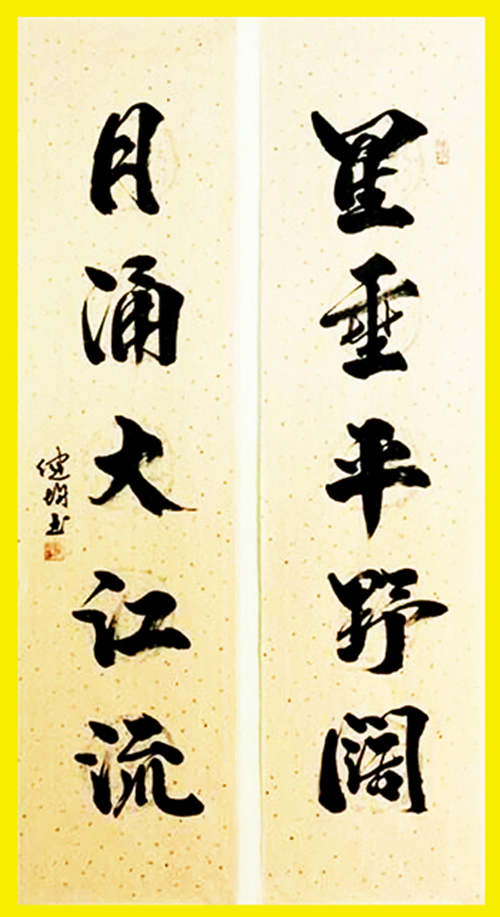 星垂平野阔
月涌大江流
书